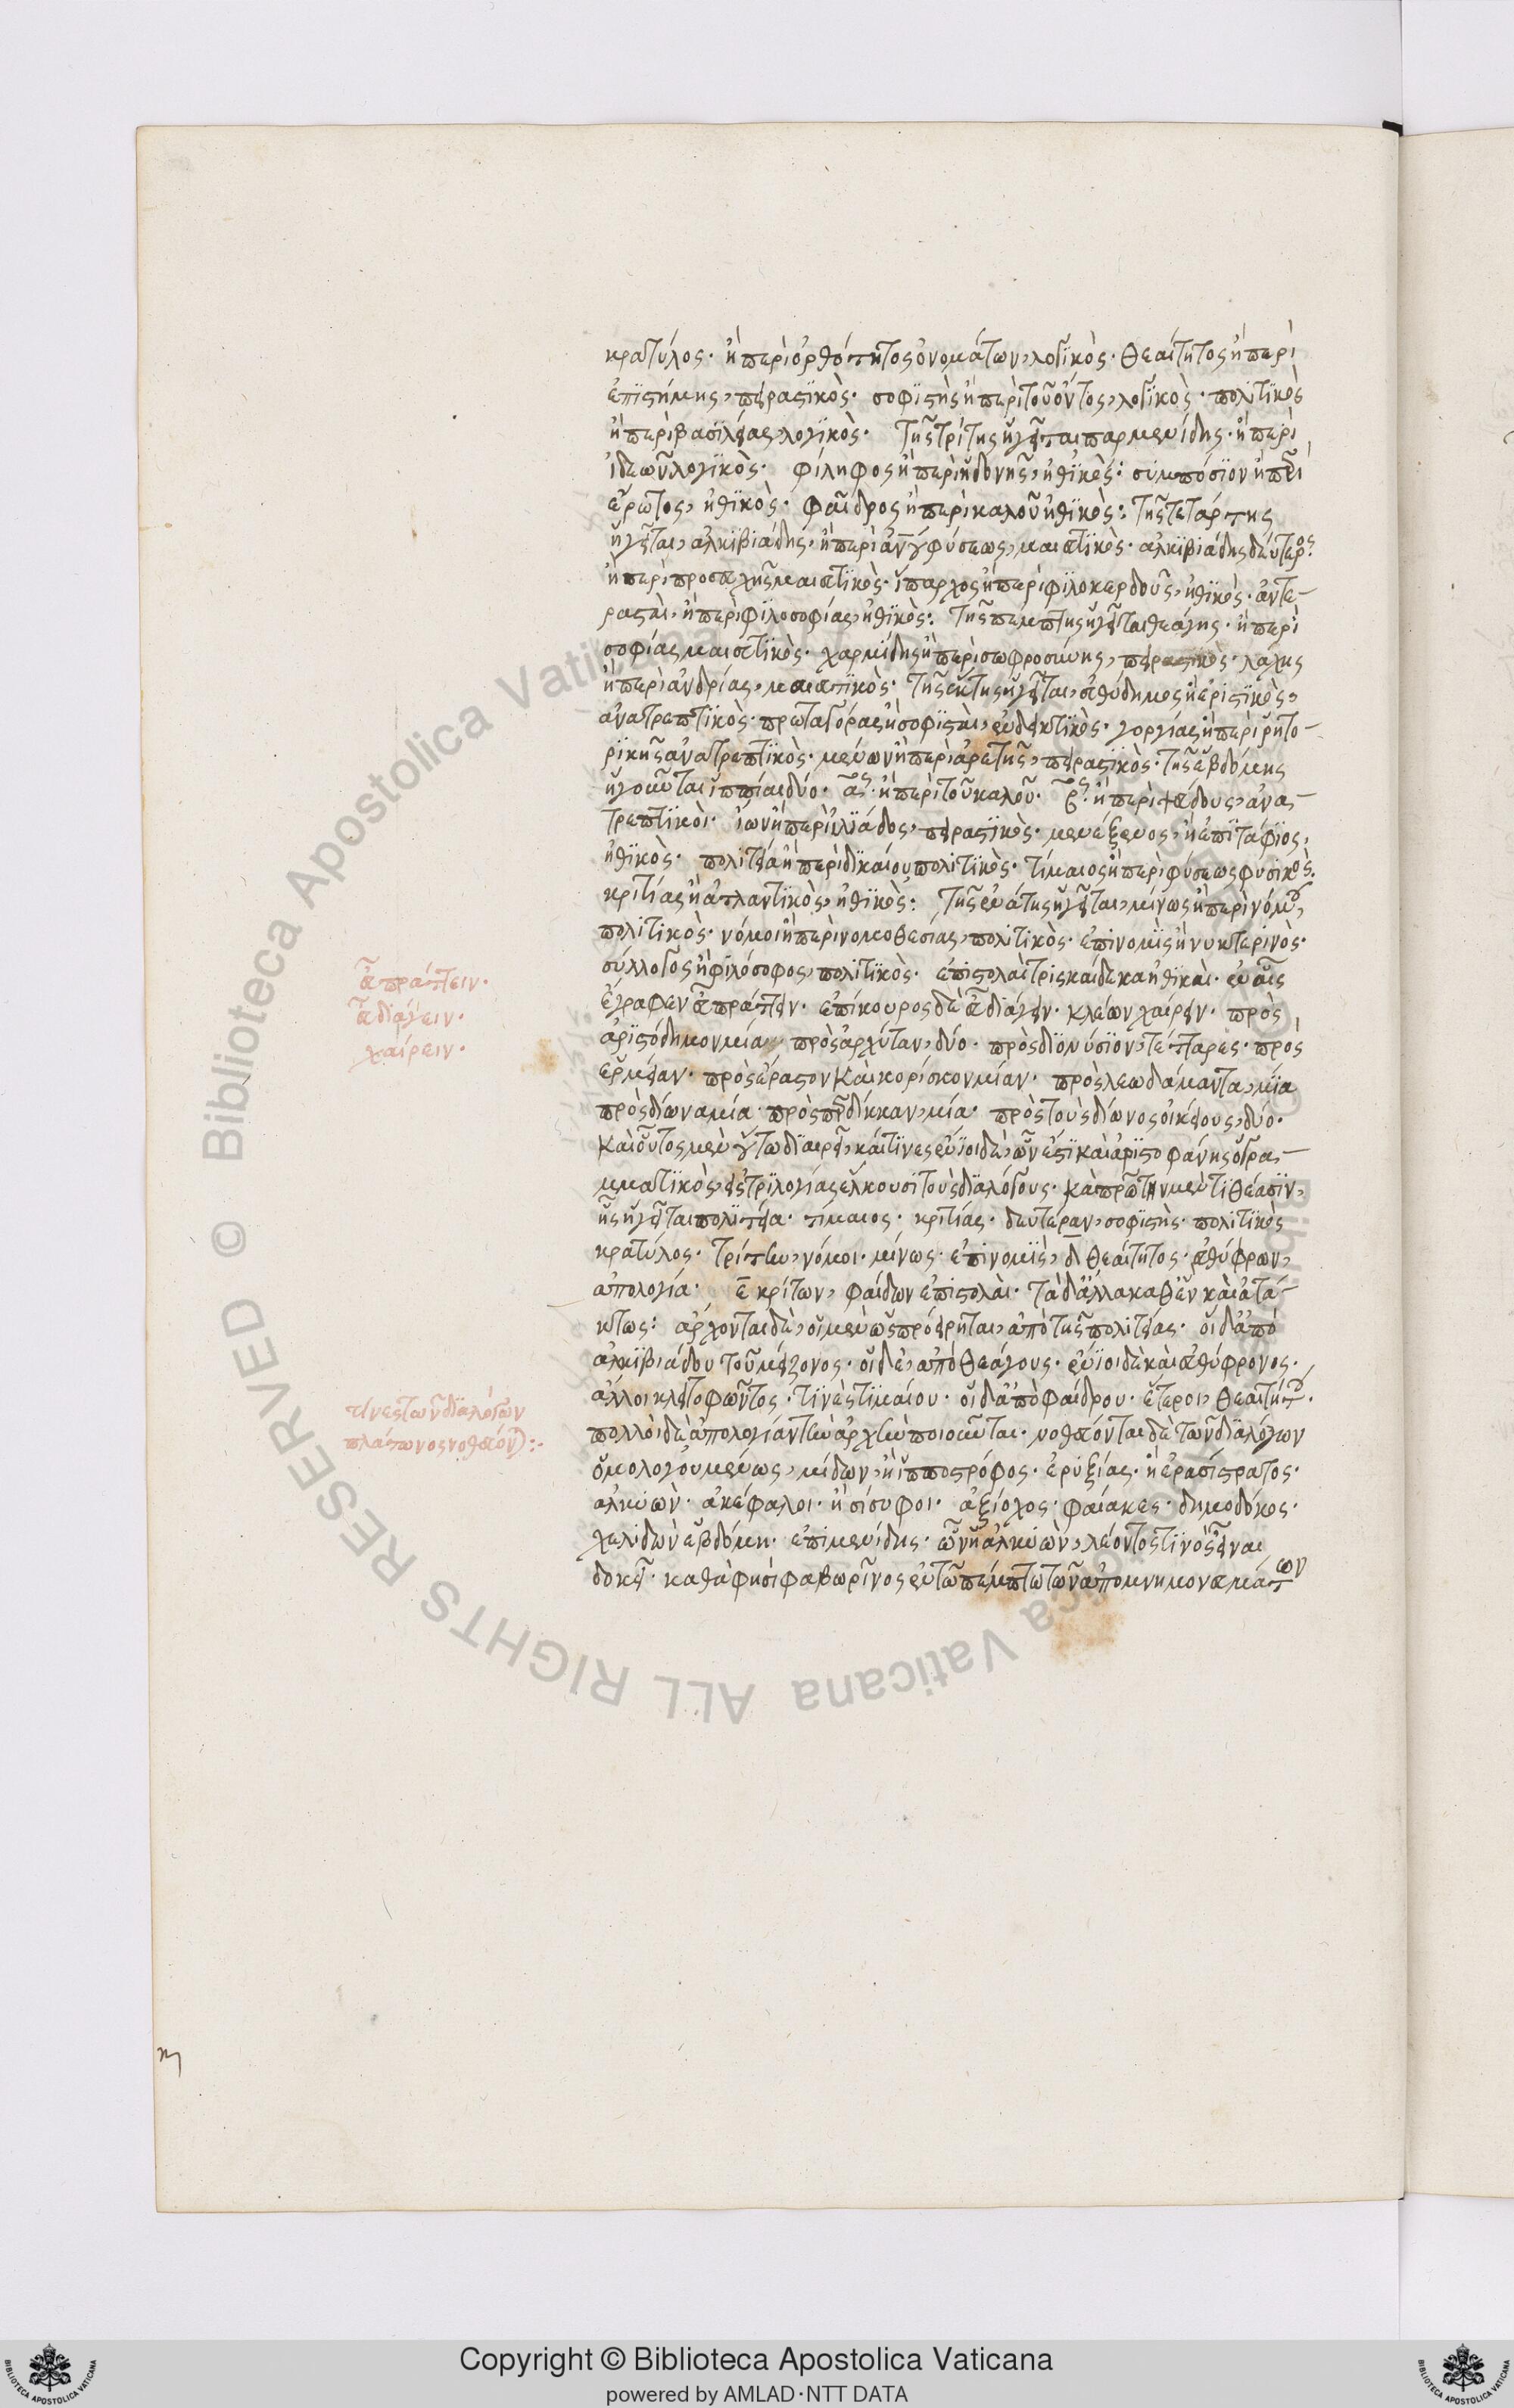 κρατύλος· ἢ περὶ ὀρθότητος ὀνομάτων, λογικὸς· θεαίτητος ἢ περὶ
ἐπιστήμης, πειραστικὸς· σοφιστὴς ἢ περὶ τοῦ ὄντος, λογικὸς· πολιτικὸς
ἢ περὶ βασιλείας, λογικὸς· τῆς τρίτης ἡγεῖται παρμενίδης· ἢ περὶ
ἰδεῶν λογικὸς· φίληβος ἢ περὶ ἡδονῆς, ἠθικὸς: συμπόσιον ἢ περὶ
ἔρωτος, ἠθικὸς· φαῖδρος ἢ περὶ καλοῦ ἠθικὸς: τῆς τετάρτης
ἡγεῖται, ἀλκιβιάδης, ἢ περὶ ἀνου φύσεως, μαιευτικὸς· ἀλκιβιάδης δεύτερος
ἢ περὶ προσευχῆς μαιευτικὸς· ἵππαρχος ἢ περὶ φιλοκερδοῦς, ἠθικὸς· ἀντε-
ρασταὶ, ἢ περὶ φιλοσοφίας, ἠθικὸς: τῆς πέμπτης ἡγεῖται θεάγης· ἢ περὶ
σοφίας μαιευτικὸς· χαρμίδης ἢ περὶ σωφροσύνης, πειραστικὸς· λάχης
ἢ περὶ ἀνδρίας, μαιευτικὸς· τῆς ἕκτης ἡγεῖται, εὐθύδημος ἢ ἐριστικὸς,
ἀνατρεπτικὸς· πρωταγόρας ἢ σοφισταὶ, ἐνδεικτικὸς· γοργίας ἢ περὶ ῥητο-
ρικῆς ἀνατρεπτικὸς· μένων ἢ περὶ ἀρετῆς, πειραστικὸς· τῆς ἑβδόμης
ἡγοῦνται ἱππίαι δύο· ας· ἢ περὶ τοῦ καλοῦ· βς· ἢ περὶ ψεύδους, ἀνα-
τρεπτικοὶ· ἴων ἢ περὶ ἰλιάδος, πειραστικὸς· μενέξενος, ἢ ἐπιτάφιος,
ἠθικὸς· πολιτεία ἢ περὶ δικαίου πολιτικὸς· τίμαιος ἢ περὶ φύσεως φυσικὸς.
κριτίας ἢ ἀτλαντικὸς, ἠθικὸς: τῆς ἐνάτης ἡγεῖται, μίνως ἢ περὶ νόμου,
πολιτικὸς· νόμοι ἢ περὶ νομοθεσίας, πολιτικὸς· ἐπινομὶς ἢ νυκτερινὸς·
σύλλογος ἢ φιλόσοφος, πολιτικὸς· ἐπιστολαὶ τρισκαίδεκα ἠθικαὶ· ἐν αἷς
ἔγραφεν εὖ πράττειν· ἐπίκουρος δὲ εὖ διάγειν· κλέων χαίρειν· πρὸς
ἀριστόδημον μία, πρὸς ἀρχύταν, δύο· πρὸς διονύσιον, τέτταρες· πρὸς
ἑρμείαν· πρὸς ἔραστον καὶ κορίσκον μίαν· πρὸς λεωδάμαντα, μία
πρὸς δίωνα μία· πρὸς περδίκκαν, μία· πρὸς τοὺς δίωνος οἰκείους, δύο·
καὶ οὗτος μὲν οὕτω διαιρεῖ, καί τινες ἔνιοι δὲ ὧν ἐστὶ καὶ ἀριστοφάνης ὁ γρα-
μματικὸς, εἰς τριλογίας ἕλκουσι τοὺς διαλόγους· καὶ πρώτην μὲν τιθέασιν,
ἧς ἡγεῖται πολιτεία· τίμαιος· κριτίας· δευτέραν, σοφιστὴς· πολιτικὸς
κρατύλος· τρίτην, νόμοι· μίνως· ἐπινομὶς, δ θεαίτητος· εὐθύφρων,
ἀπολογία· ε κρίτων, φαίδων ἐπιστολαὶ· τὰ δ' ἄλλα καθ' ἓν καὶ ἀτά-
κτως: ἄρχονται δὲ, οἱ μὲν ὡς προείρηται, ἀπὸ τῆς πολιτείας· οἱ δ' ἀπὸ
ἀλκιβιάδου τοῦ μείζονος· οἱ δὲ, ἀπὸ θεάγους· ἔνιοι δὲ καὶ εὐθύφρονος·
ἄλλοι κλειτοφῶντος· τινὲς τιμαίου· οἱ δ' ἀπὸ φαίδρου· ἕτεροι, θεαιτήτου.
πολλοὶ δὲ ἀπολογίαν τὴν ἀρχὴν ποιοῦνται· νοθεύονται δὲ τῶν διαλόγων
ὁμολογουμένως, μίδων, ἢ ἱπποστρόφος· ἐρυξίας· ἢ ἐρασίστρατος·
ἀλκυὼν· ἀκέφαλοι· ἢ σίσυφοι· ἀξίοχος· φαίακες· δημοδόκος·
χελιδὼν ἑβδόμη· ἐπιμενίδης· ὧν ἡ ἀλκυὼν, λέοντός τινος εἶναι
δοκεῖ· καθὰ φησὶ φαβωρῖνος ἐν τῶ πέμπτω τῶν ἀπομνημονευμάτων
εὖ πράττειν·
εὖ διάγειν·
χαίρειν·
τίνες τῶν διαλόγων
πλάτωνος νοθεύονται:·
© Biblioteca Apostolica Vaticana ALL RIGHTS RESERVED
Copyright © Biblioteca Apostolica Vaticana
powered by AMLAD·NTT DATA
BIBLIOTECA APOSTOLICA VATICANA
BIBLIOTECA APOSTOLICA VATICANA